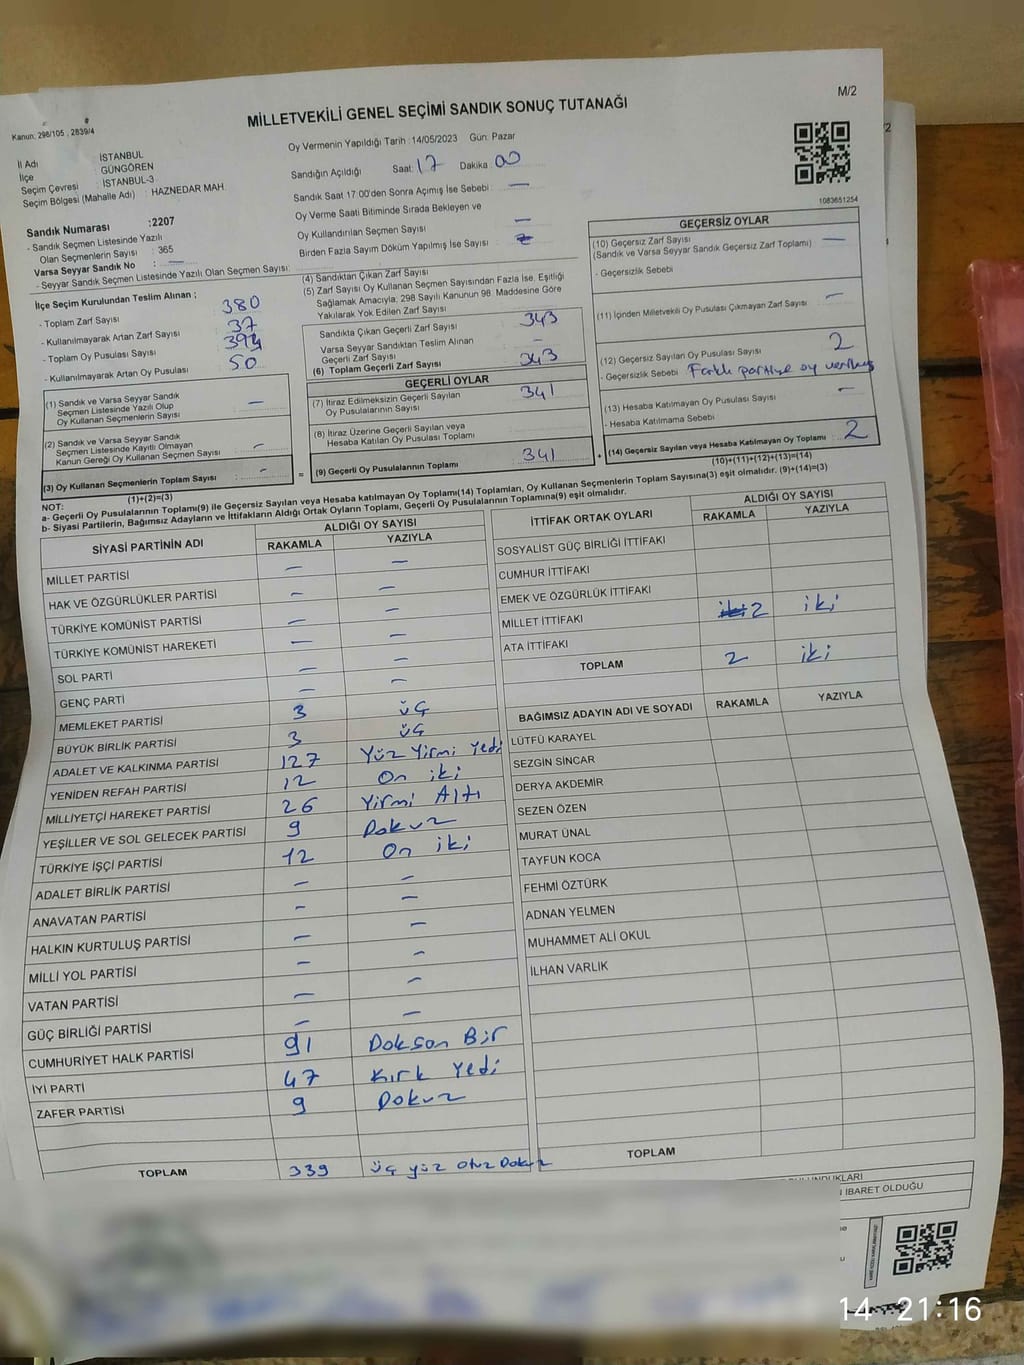 M/2
MİLLETVEKİLİ GENEL SEÇİMİ SANDIK SONUÇ TUTANAĞI
Kanun; 298/105 , 2839/4
İl Adı : İSTANBUL
İlçe : GÜNGÖREN
Seçim Çevresi : İSTANBUL-3
Seçim Bölgesi (Mahalle Adı) : HAZNEDAR MAH.
Oy Vermenin Yapıldığı Tarih :14/05/2023 Gün: Pazar
Sandığın Açıldığı Saat: 17 Dakika 00
Sandık Saat 17:00'den Sonra Açımış İse Sebebi : —
Oy Verme Saati Bitiminde Sırada Bekleyen ve
Oy Kullandırılan Seçmen Sayısı —
Birden Fazla Sayım Döküm Yapılmış İse Sayısı
1083651254
Sandık Numarası :2207
- Sandık Seçmen Listesinde Yazılı
Olan Seçmenlerin Sayısı : 365
Varsa Seyyar Sandık No : —
- Seyyar Sandık Seçmen Listesinde Yazılı Olan Seçmen Sayısı:
İlçe Seçim Kurulundan Teslim Alınan ;
- Toplam Zarf Sayısı 380
- Kullanılmayarak Artan Zarf Sayısı 37
- Toplam Oy Pusulası Sayısı
- Kullanılmayarak Artan Oy Pusulası 50
(1) Sandık ve Varsa Seyyar Sandık
Seçmen Listesinde Yazılı Olup
Oy Kullanan Seçmenlerin Sayısı : —
(2) Sandık ve Varsa Seyyar Sandık
Seçmen Listesinde Kayıtlı Olmayan
Kanun Gereği Oy Kullanan Seçmen Sayısı : —
(3) Oy Kullanan Seçmenlerin Toplam Sayısı : -
(1)+(2)=(3)
(4) Sandıktan Çıkan Zarf Sayısı
(5) Zarf Sayısı Oy Kullanan Seçmen Sayısından Fazla İse, Eşitliği
Sağlamak Amacıyla, 298 Sayılı Kanunun 98. Maddesine Göre
Yakılarak Yok Edilen Zarf Sayısı
Sandıkta Çıkan Geçerli Zarf Sayısı 343
Varsa Seyyar Sandıktan Teslim Alınan
Geçerli Zarf Sayısı -
(6) Toplam Geçerli Zarf Sayısı 343
GEÇERLİ OYLAR
(7) İtiraz Edilmeksizin Geçerli Sayılan
Oy Pusulalarının Sayısı 341
(8) İtiraz Üzerine Geçerli Sayılan veya
Hesaba Katılan Oy Pusulası Toplamı
= (9) Geçerli Oy Pusulalarının Toplamı 341 +
GEÇERSİZ OYLAR
(10) Geçersiz Zarf Sayısı
(Sandık ve Varsa Seyyar Sandık Geçersiz Zarf Toplamı) —
- Geçersizlik Sebebi
(11) İçinden Milletvekili Oy Pusulası Çıkmayan Zarf Sayısı —
(12) Geçersiz Sayılan Oy Pusulası Sayısı 2
- Geçersizlik Sebebi Farklı partiye oy verilmiş
(13) Hesaba Katılmayan Oy Pusulası Sayısı -
- Hesaba Katılmama Sebebi
(14) Geçersiz Sayılan veya Hesaba Katılmayan Oy Toplamı 2
(10)+(11)+(12)+(13)=(14)
NOT:
a- Geçerli Oy Pusulalarının Toplamı(9) ile Geçersiz Sayılan veya Hesaba katılmayan Oy Toplamı(14) Toplamları, Oy Kullanan Seçmenlerin Toplam Sayısına(3) eşit olmalıdır. (9)+(14)=(3)
b- Siyasi Partilerin, Bağımsız Adayların ve İttifakların Aldığı Ortak Oyların Toplamı, Geçerli Oy Pusulalarının Toplamına(9) eşit olmalıdır.
SİYASİ PARTİNİN ADI ALDIĞI OY SAYISI
RAKAMLA YAZIYLA
MİLLET PARTİSİ — —
HAK VE ÖZGÜRLÜKLER PARTİSİ — —
TÜRKİYE KOMÜNİST PARTİSİ — —
TÜRKİYE KOMÜNİST HAREKETİ — —
SOL PARTİ — —
GENÇ PARTİ — —
MEMLEKET PARTİSİ 3 üç
BÜYÜK BİRLİK PARTİSİ 3 üç
ADALET VE KALKINMA PARTİSİ 127 Yüz Yirmi Yedi
YENİDEN REFAH PARTİSİ 12 On iki
MİLLİYETÇİ HAREKET PARTİSİ 26 Yirmi Altı
YEŞİLLER VE SOL GELECEK PARTİSİ 9 Dokuz
TÜRKİYE İŞÇİ PARTİSİ 12 On iki
ADALET BİRLİK PARTİSİ — —
ANAVATAN PARTİSİ — —
HALKIN KURTULUŞ PARTİSİ — —
MİLLİ YOL PARTİSİ — —
VATAN PARTİSİ — —
GÜÇ BİRLİĞİ PARTİSİ — —
CUMHURİYET HALK PARTİSİ 91 Doksan Bir
İYİ PARTİ 47 Kırk Yedi
ZAFER PARTİSİ 9 Dokuz
TOPLAM 339 üç yüz otuz Dokuz
İTTİFAK ORTAK OYLARI ALDIĞI OY SAYISI
RAKAMLA YAZIYLA
SOSYALİST GÜÇ BİRLİĞİ İTTİFAKI
CUMHUR İTTİFAKI
EMEK VE ÖZGÜRLÜK İTTİFAKI
MİLLET İTTİFAKI 2 iki
ATA İTTİFAKI
TOPLAM 2 iki
BAĞIMSIZ ADAYIN ADI VE SOYADI RAKAMLA YAZIYLA
LÜTFÜ KARAYEL
SEZGİN SİNCAR
DERYA AKDEMİR
SEZEN ÖZEN
MURAT ÜNAL
TAYFUN KOCA
FEHMİ ÖZTÜRK
ADNAN YELMEN
MUHAMMET ALİ OKUL
İLHAN VARLIK
TOPLAM
BULUNDUKLARI
İBARET OLDUĞU
14 21:16